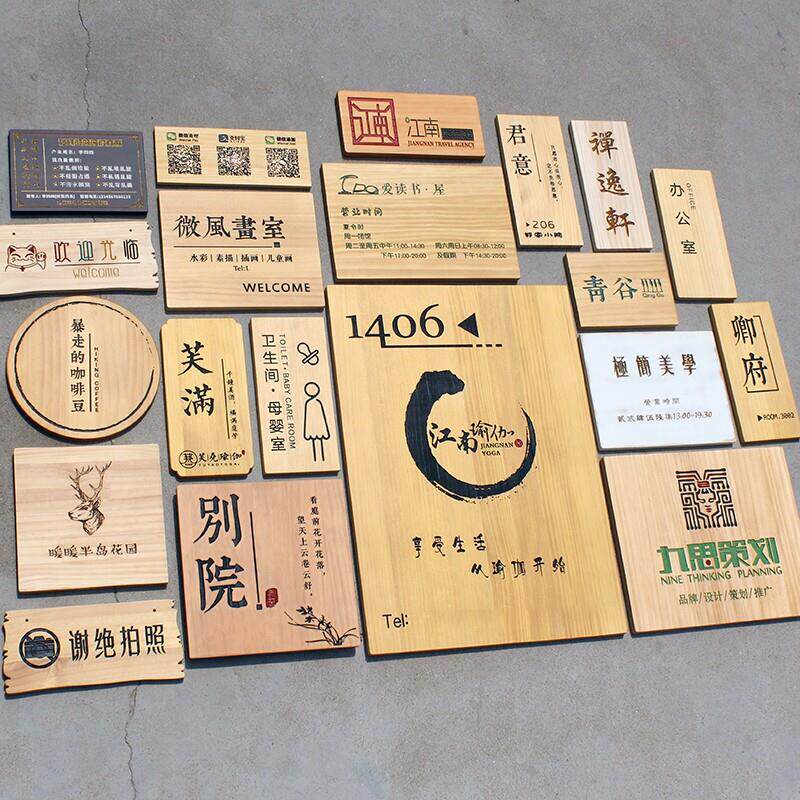 江南
JIANGNAN TRAVEL AGENCY
君意
206
禪逸軒
OFFICE
办公室
爱读书·屋
营业时间
夏令时
周一闭馆
周二至周五中午11:00-14:30
下午17:00-20:00
周六周日上午08:30-12:00
及假期 下午14:30-20:00
微風畫室
水彩|素描|插画|儿童画
Tel:
WELCOME
欢迎光临
Welcome
暴走的咖啡豆
HIKING COFFEE
芙滿
芙曵瑜伽
FUYEOYOGA
TOILET·BABY CARE ROOM
卫生间·母婴室
1406
江南瑜伽
JIANGNAN
YOGA
享受生活
从瑜伽开始
Tel:
青谷
Qing Gu
極簡美學
營業時間
13:00-19:30
卿府
ROOM.3002
暖暖半岛花园
別院
看庭前花开花落，
望天上云卷云舒。
谢绝拍照
九思策划
NINE THINKING PLANNING
品牌/设计/策划/推广